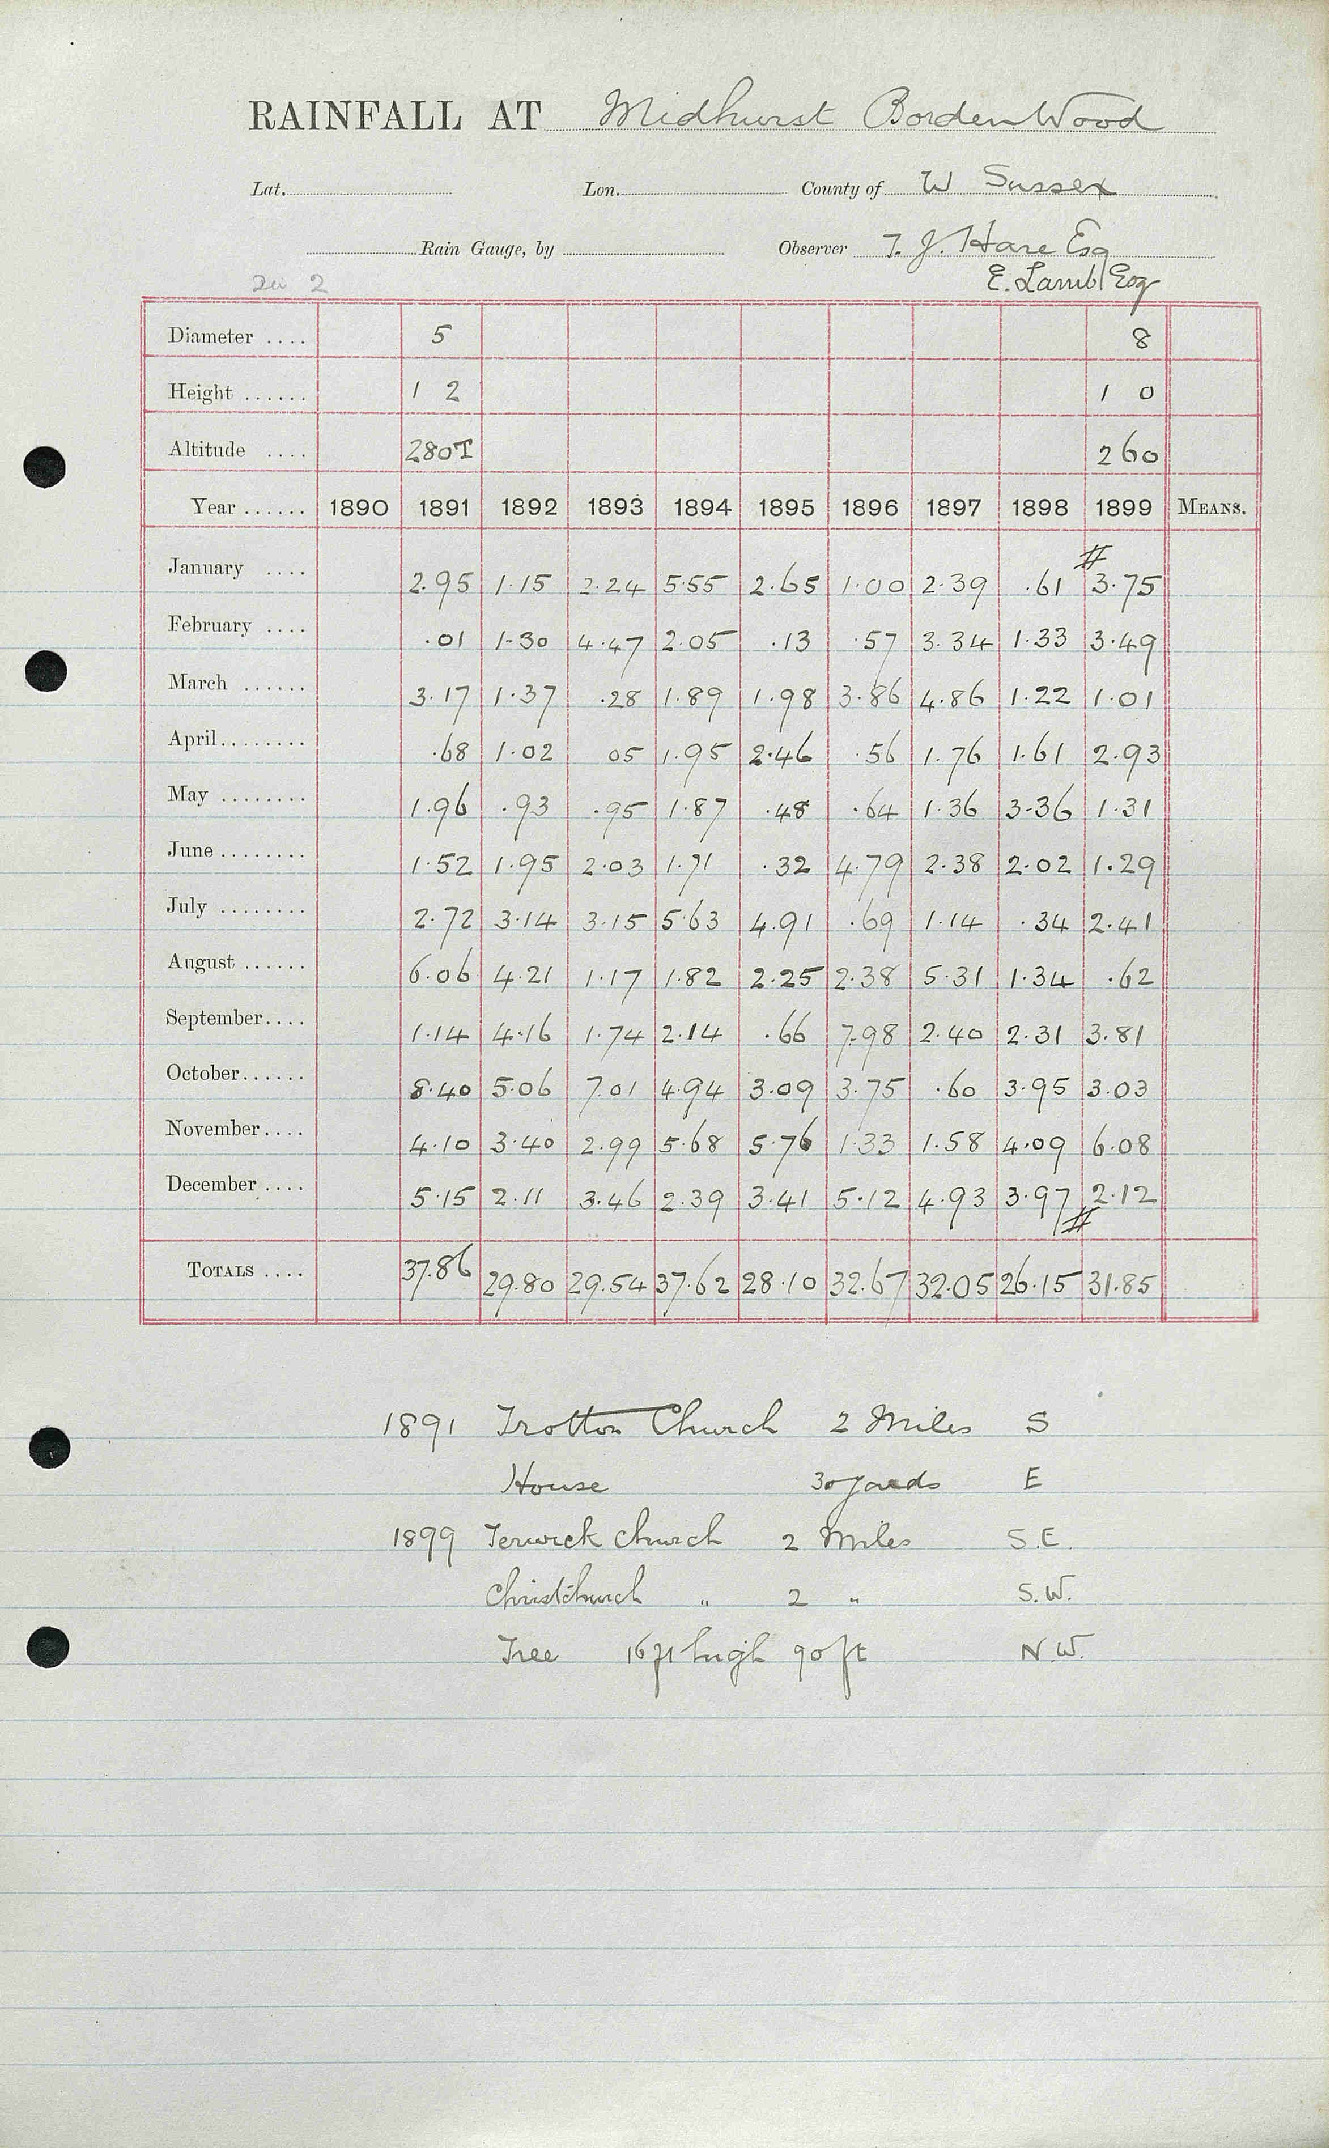 RAINFALL AT Midhurst Borden Wood
Lat. Lon. County of W Sussex
Rain Gauge, by Observer T. J. Hare Esq
2 E. Lamb Esq
Diameter .... 5 8
Height ...... 1 2 1 0
Altitude .... 280T 260
Year ...... 1890 1891 1892 1893 1894 1895 1896 1897 1898 1899 MEANS.
#
January .... 2.95 1.15 2.24 5.55 2.65 1.00 2.39 .61 3.75
February .... .01 1.30 4.47 2.05 .13 .57 3.34 1.33 3.49
March ...... 3.17 1.37 .28 1.89 1.98 3.86 4.86 1.22 1.01
April........ .68 1.02 05 1.95 2.46 .56 1.76 1.61 2.93
May ........ 1.96 .93 .95 1.87 .48 .64 1.36 3.36 1.31
June ........ 1.52 1.95 2.03 1.71 .32 4.79 2.38 2.02 1.29
July ........ 2.72 3.14 3.15 5.63 4.91 .69 1.14 .34 2.41
August ...... 6.06 4.21 1.17 1.82 2.25 2.38 5.31 1.34 .62
September.... 1.14 4.16 1.74 2.14 .66 7.98 2.40 2.31 3.81
October...... 8.40 5.06 7.01 4.94 3.09 3.75 .60 3.95 3.03
November.... 4.10 3.40 2.99 5.68 5.76 1.33 1.58 4.09 6.08
December .... 5.15 2.11 3.46 2.39 3.41 5.12 4.93 3.97 2.12
#
TOTALS .... 37.86 29.80 29.54 37.62 28.10 32.67 32.05 26.15 31.85
1891 Trotton Church 2 Miles S
House 30 yards E
1899 Terwick church 2 Miles S.E.
Christchurch " 2 " S.W.
Tree 16 ft high 90 ft N.W.